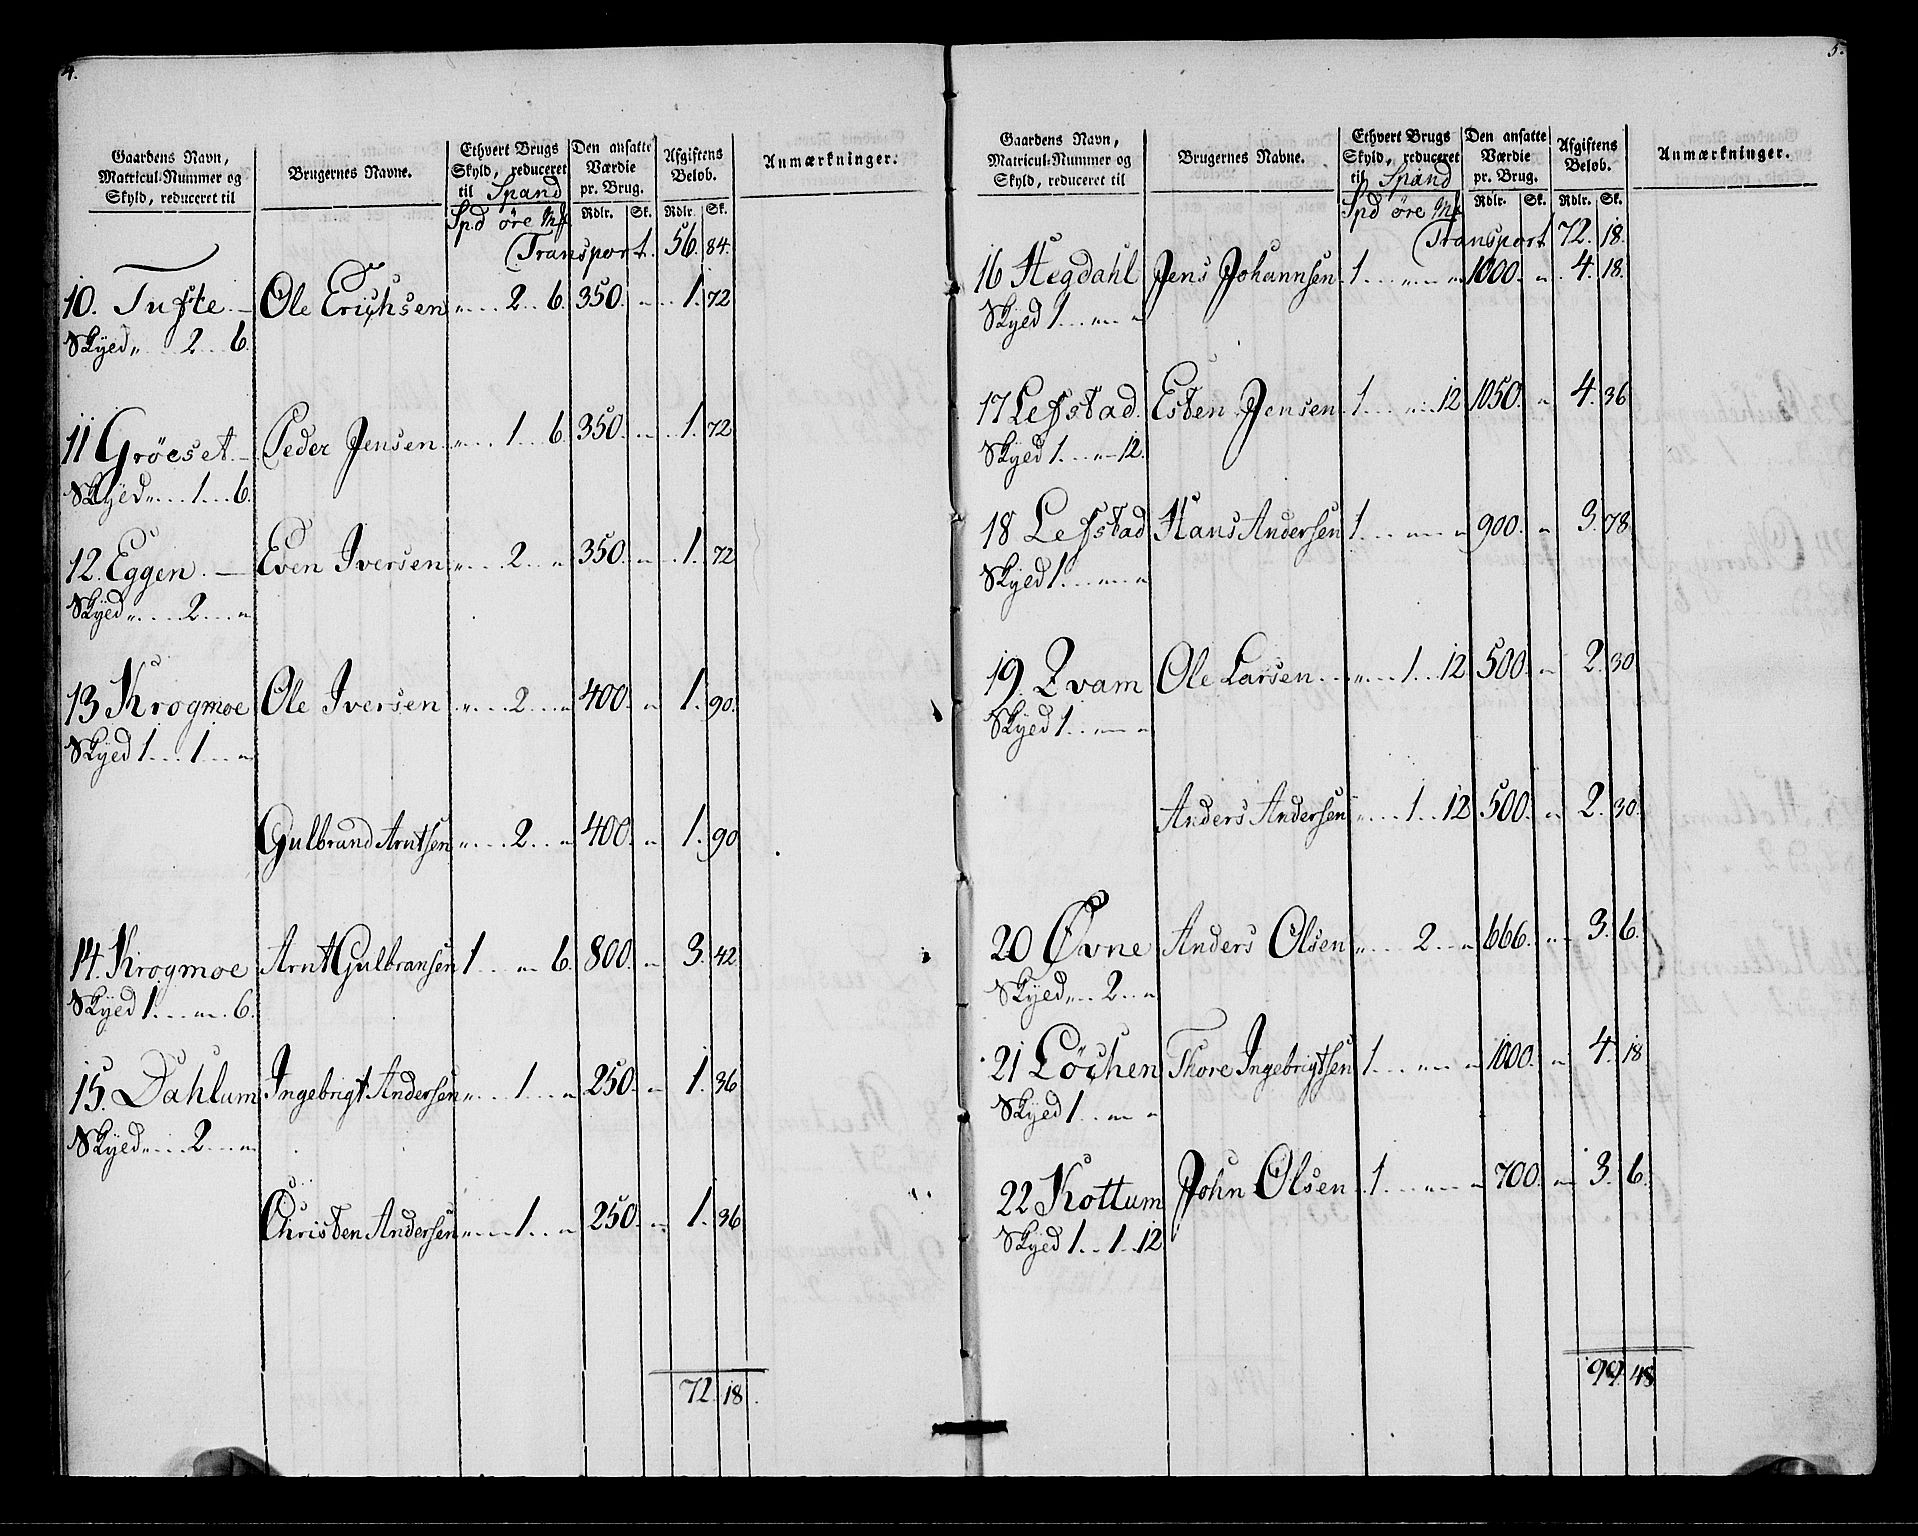 4.
Gaardens Navn, Matricul-Nummer og Skyld, reduceret til | Brugernes Navne. | Ethvert Brugs Skyld, reduceret til Spand | Den ansatte Værdie pr. Brug. | Afgiftens Beløb. | Anmærkninger.
Spd øre Mk | Rdlr. | Sk. | Rdlr. | Sk.
Transport. 56. 84.
10. Tufte. Ole Erichsen „ 2 6. 350. „ 1. 72
Skyed „ 2 6.
11 Gröeset. Peder Jensen „ 1 6. 350. „ 1. 72
Skyed „ 1 6.
12. Eggen. Even Iversen „ 2 „ 350. „ 1. 72
Skyed „ 2 „
13 Krogmoe Ole Iversen „ 2 „ 400. „ 1. 90.
Skyed 1 1 „
Gulbrand Arntsen „ 2 „ 400. „ 1. 90
14. Krogmoe Arnt Gulbransen 1 „ 6. 800. „ 3. 42
Skyed 1 „ 6.
15. Dahlum Ingebrigt Andersen „ 1 „ 250. „ 1. 36
Skyed „ 2 „
Christen Andersen „ 1 „ 250. „ 1. 36
72. 18.
5.
Gaardens Navn, Matricul-Nummer og Skyld, reduceret til | Brugernes Navne. | Ethvert Brugs Skyld, reduceret til Spand | Den ansatte Værdie pr. Brug. | Afgiftens Beløb. | Anmærkninger.
Spd øre Mk | Rdlr. | Sk. | Rdlr. | Sk.
Transport 72. 18.
16 Hegdahl Jens Johannsen 1 „ „ 1000. „ 4. 18.
Skyed 1 „ „
17 Lefstad. Esten Jensen 1 „ 12 1050. „ 4. 36
Skyed 1 „ 12.
18 Lefstad Hans Andersen 1 „ „ 900. „ 3. 78
Skyed 1 „ „
19. Qvam Ole Larsen „ 1 12 500. „ 2. 30
Skyed 1 „ „
Anders Andersen „ 1 12 500. „ 2. 30.
20 Øvne Anders Olsen „ 2 „ 666. „ 3. 6.
Skyed „ 2 „
21 Löchen Thore Ingebrigtsen 1 „ „ 1000. „ 4. 18
Skyed 1 „ „
22 Kottum John Olsen 1 „ „ 700. „ 3. 6.
Skyed 1 1 12
99. 48